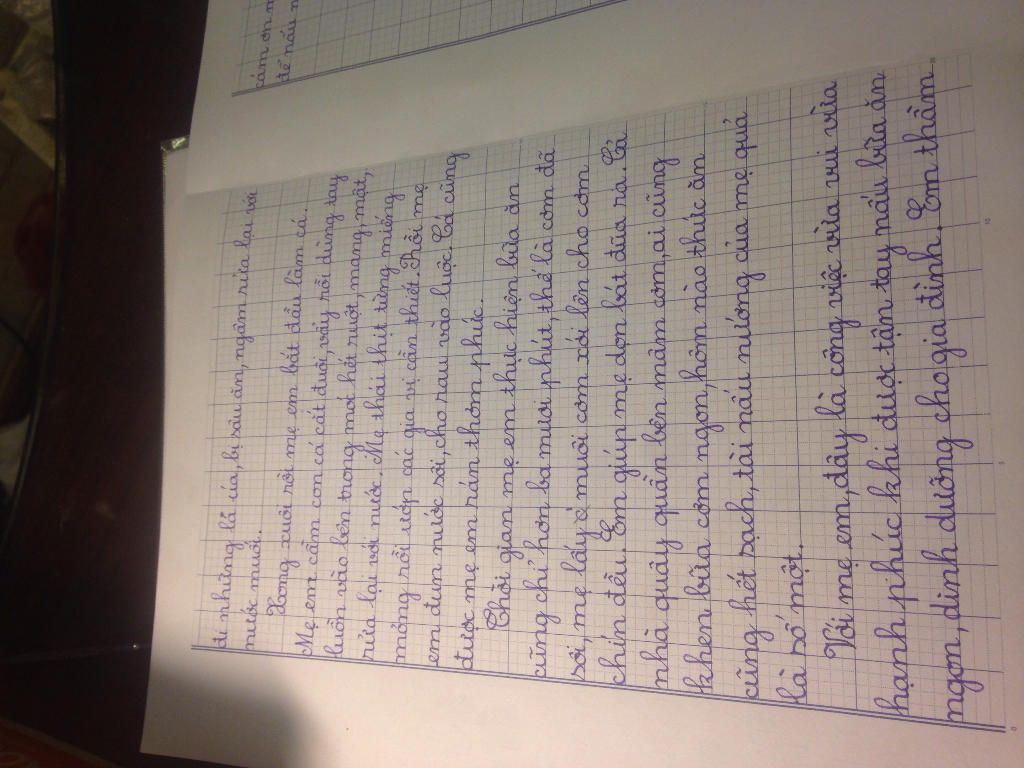 đi những lá úa, bị sâu ăn, ngâm rửa lại với
nước muối.
Xong xuôi rồi mẹ em bắt đầu làm cá.
Mẹ em cầm con cá cắt đuôi, vây rồi dùng tay
luồn vào bên trong moi hết ruột, mang, mật,
rửa lại với nước. Mẹ thái thịt từng miếng
mỏng rồi ướp các gia vị cần thiết. Rồi mẹ
em đun nước sôi, cho rau vào luộc. Cá cũng
được mẹ em rán thơm phức.
Thời gian mẹ em thực hiện bữa ăn
cũng chỉ hơn ba mươi phút, thế là cơm đã
sôi, mẹ lấy muôi cơm xới lên cho cơm
chín đều. Em giúp mẹ dọn bát đũa ra. Cả
nhà quây quần bên mâm cơm, ai cũng
khen bữa cơm ngon, hôm nào thức ăn
cũng hết sạch, tài nấu nướng của mẹ quả
là số một.
Với mẹ em, đây là công việc vừa vui vừa
hạnh phúc khi được tận tay nấu bữa ăn
ngon, dinh dưỡng cho gia đình. Em thầm
cám ơn m
để nấu n